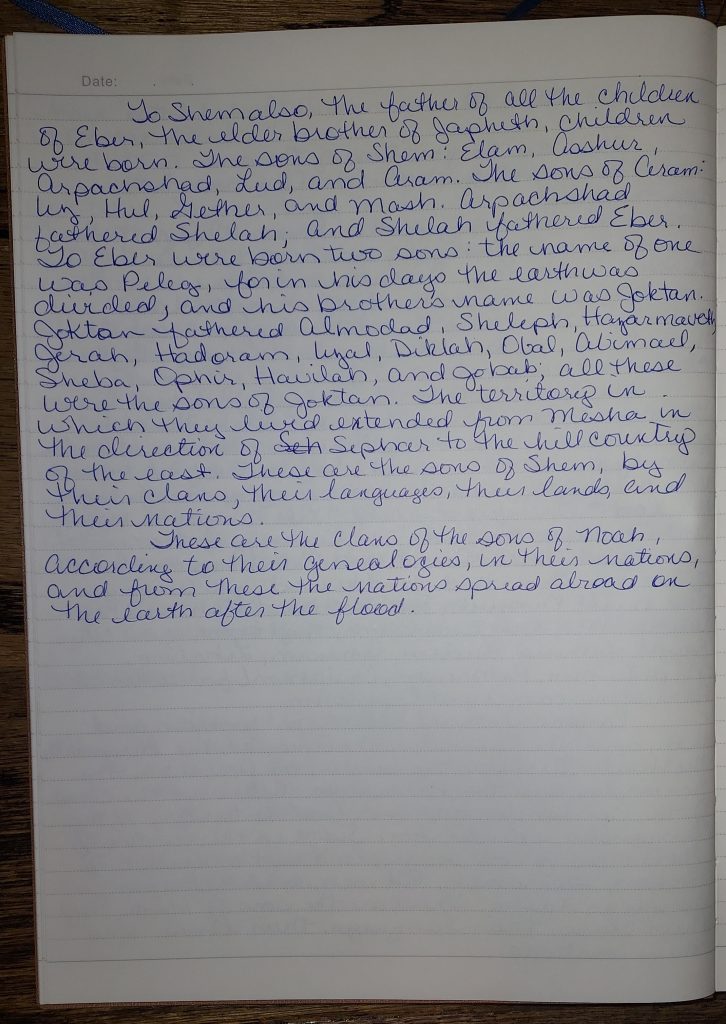 Date:
To Shem also, the father of all the children
of Eber, the elder brother of Japheth, children
were born. The sons of Shem: Elam, Asshur,
Arpachshad, Lud, and Aram. The sons of Aram:
Uz, Hul, Gether, and Mash. Arpachshad
fathered Shelah; and Shelah fathered Eber.
To Eber were born two sons: the name of one
was Peleg, for in his days the earth was
divided, and his brother's name was Joktan.
Joktan fathered Almodad, Sheleph, Hazarmaveth
Jerah, Hadoram, Uzal, Diklah, Obal, Abimael,
Sheba, Ophir, Havilah, and Jobab; all these
were the sons of Joktan. The territory in
which they lived extended from Mesha in
the direction of Seh Sephar to the hill country
of the east. These are the sons of Shem, by
their clans, their languages, their lands, and
their nations.
These are the clans of the sons of Noah,
according to their genealogies, in their nations,
and from these the nations spread abroad on
the earth after the flood.